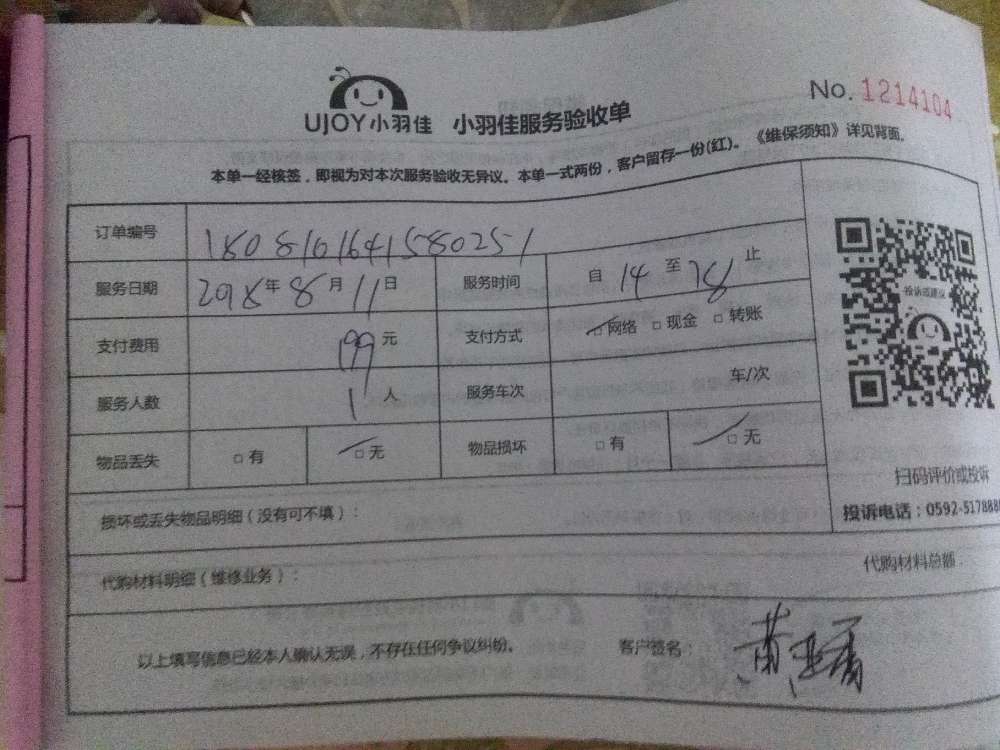 No. 1214104
UJOY小羽佳 小羽佳服务验收单
本单一经核签，即视为对本次服务验收无异议。本单一式两份，客户留存一份(红)。《维保须知》详见背面。
订单编号 1808101641580251
服务日期 2018年8月11日 服务时间 自 14 至 18 止
支付费用 199元 支付方式 ☑网络 □现金 □转账
服务人数 1 人 服务车次 车/次
物品丢失 □有 ☑无 物品损坏 □有 ☑无
投诉或建议
扫码评价或投诉
投诉电话：0592-517888
损坏或丢失物品明细（没有可不填）：
代购材料明细（维修业务）： 代购材料总额
以上填写信息已经本人确认无误，不存在任何争议纠纷。 客户签名：